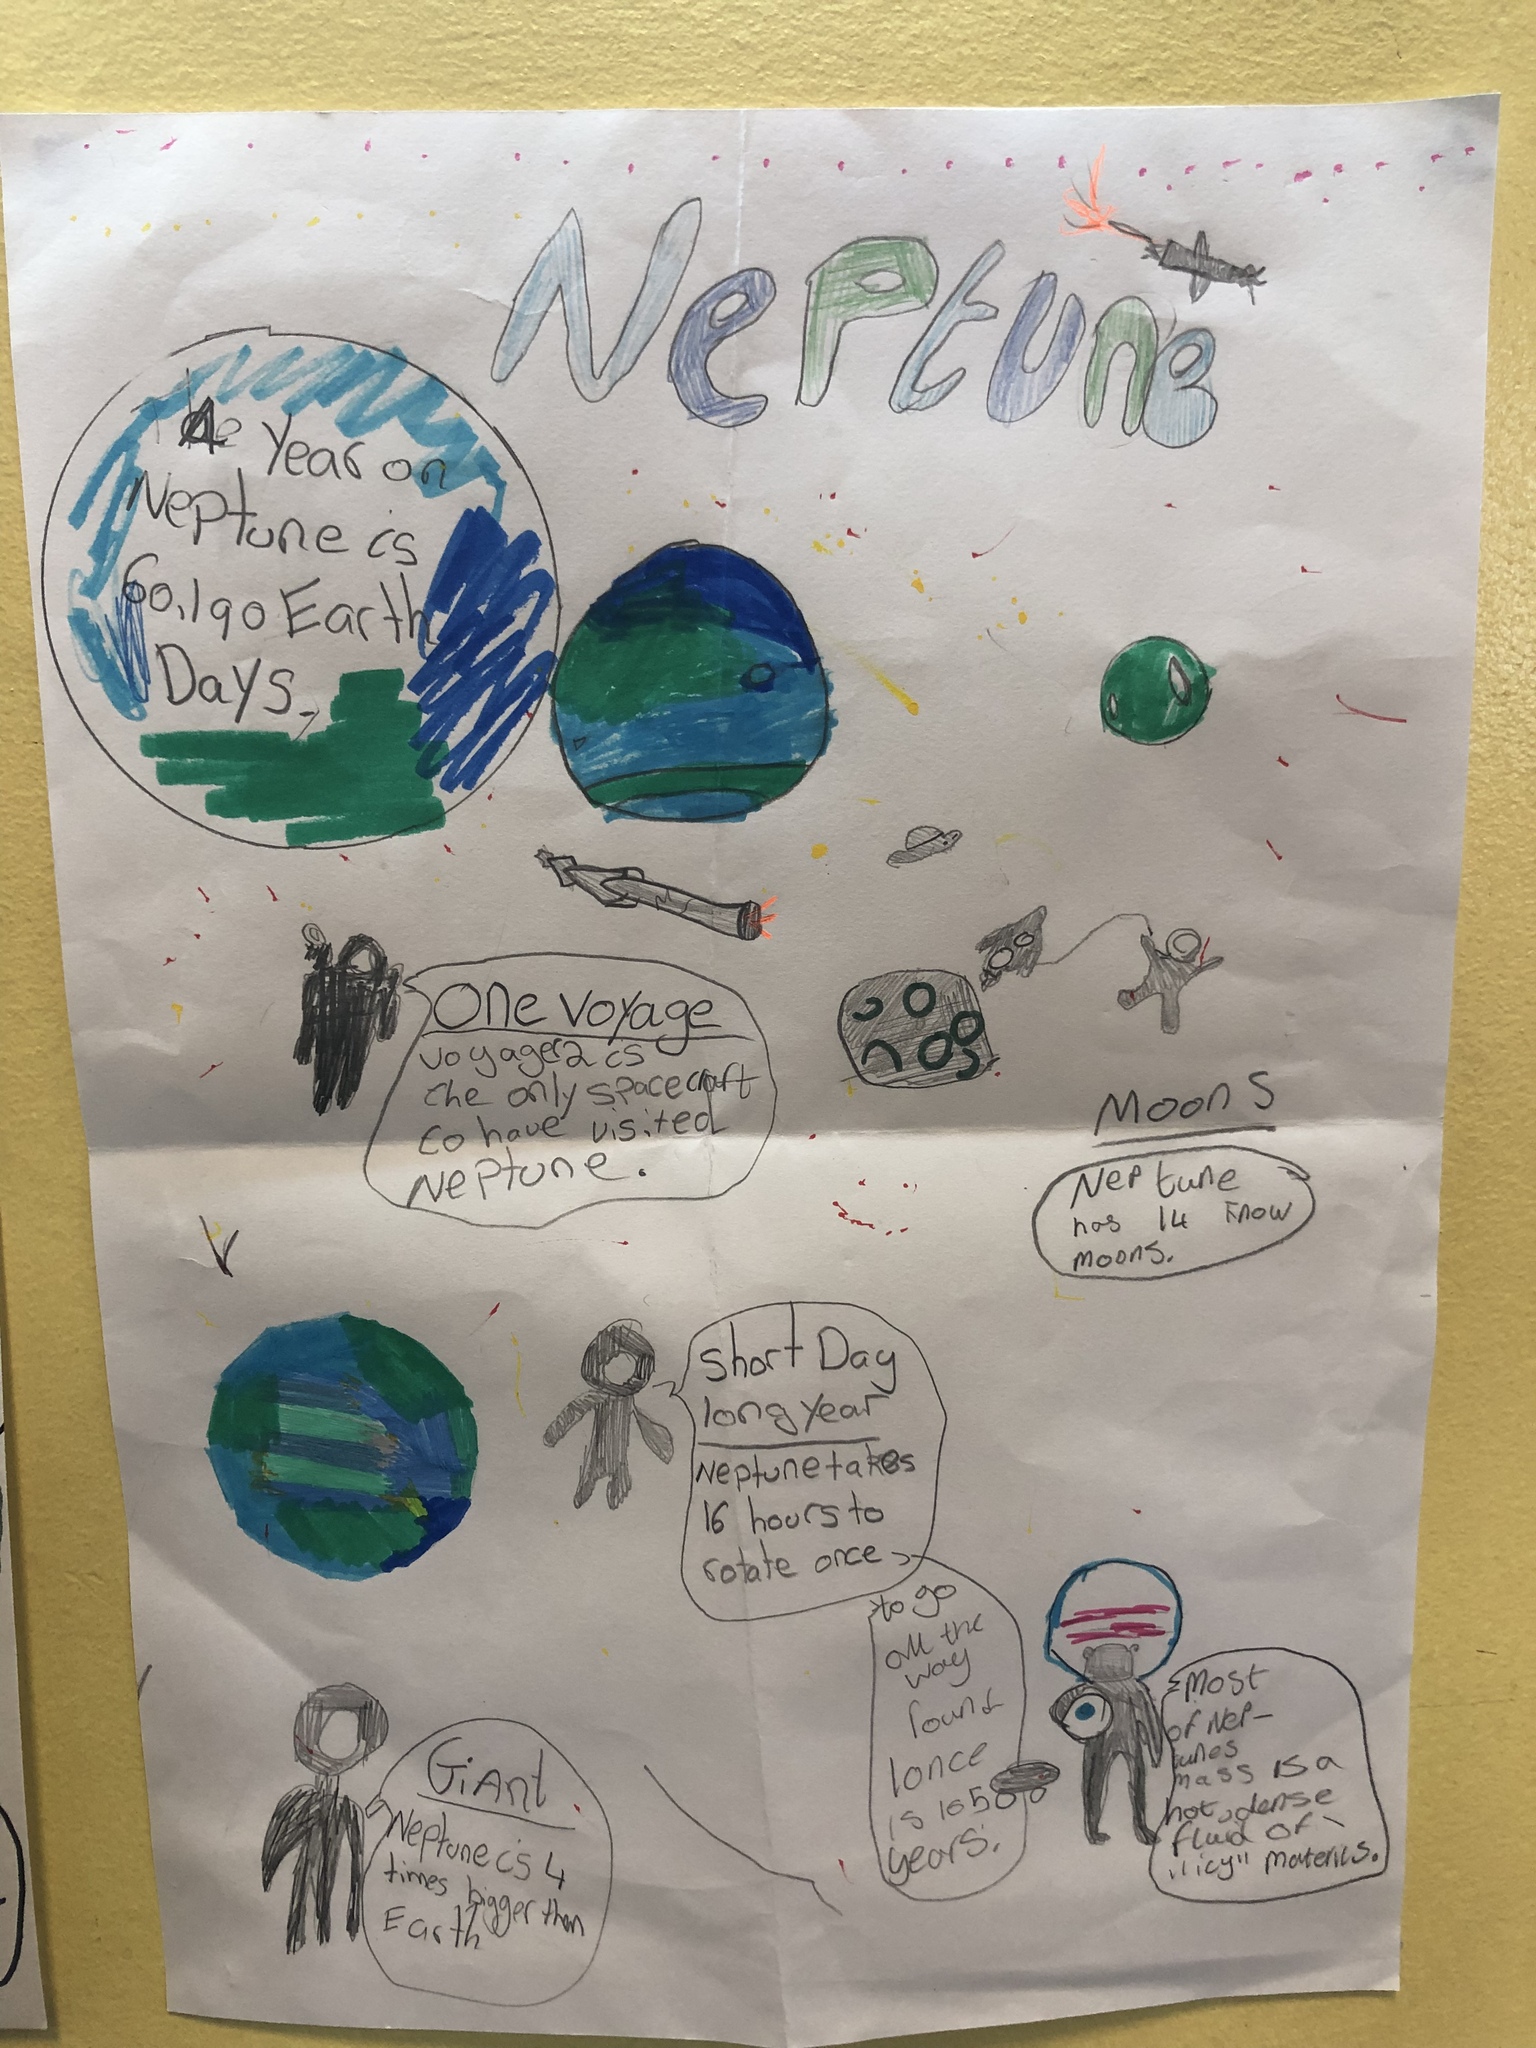 Neptune
The Year on
Neptune is
60,190 Earth
Days.
One voyage
voyager2 is
the only spacecraft
to have visited
Neptune.
Moons
Neptune
has 14 know
moons.
Short Day
long year
Neptune takes
16 hours to
rotate once
to go
all the
way
round
1once
is 165
years.
Most
of Nep-
tunes
mass is a
hot dense
fluid of
"icy" materils.
Giant
Neptune is 4
times bigger than
Earth